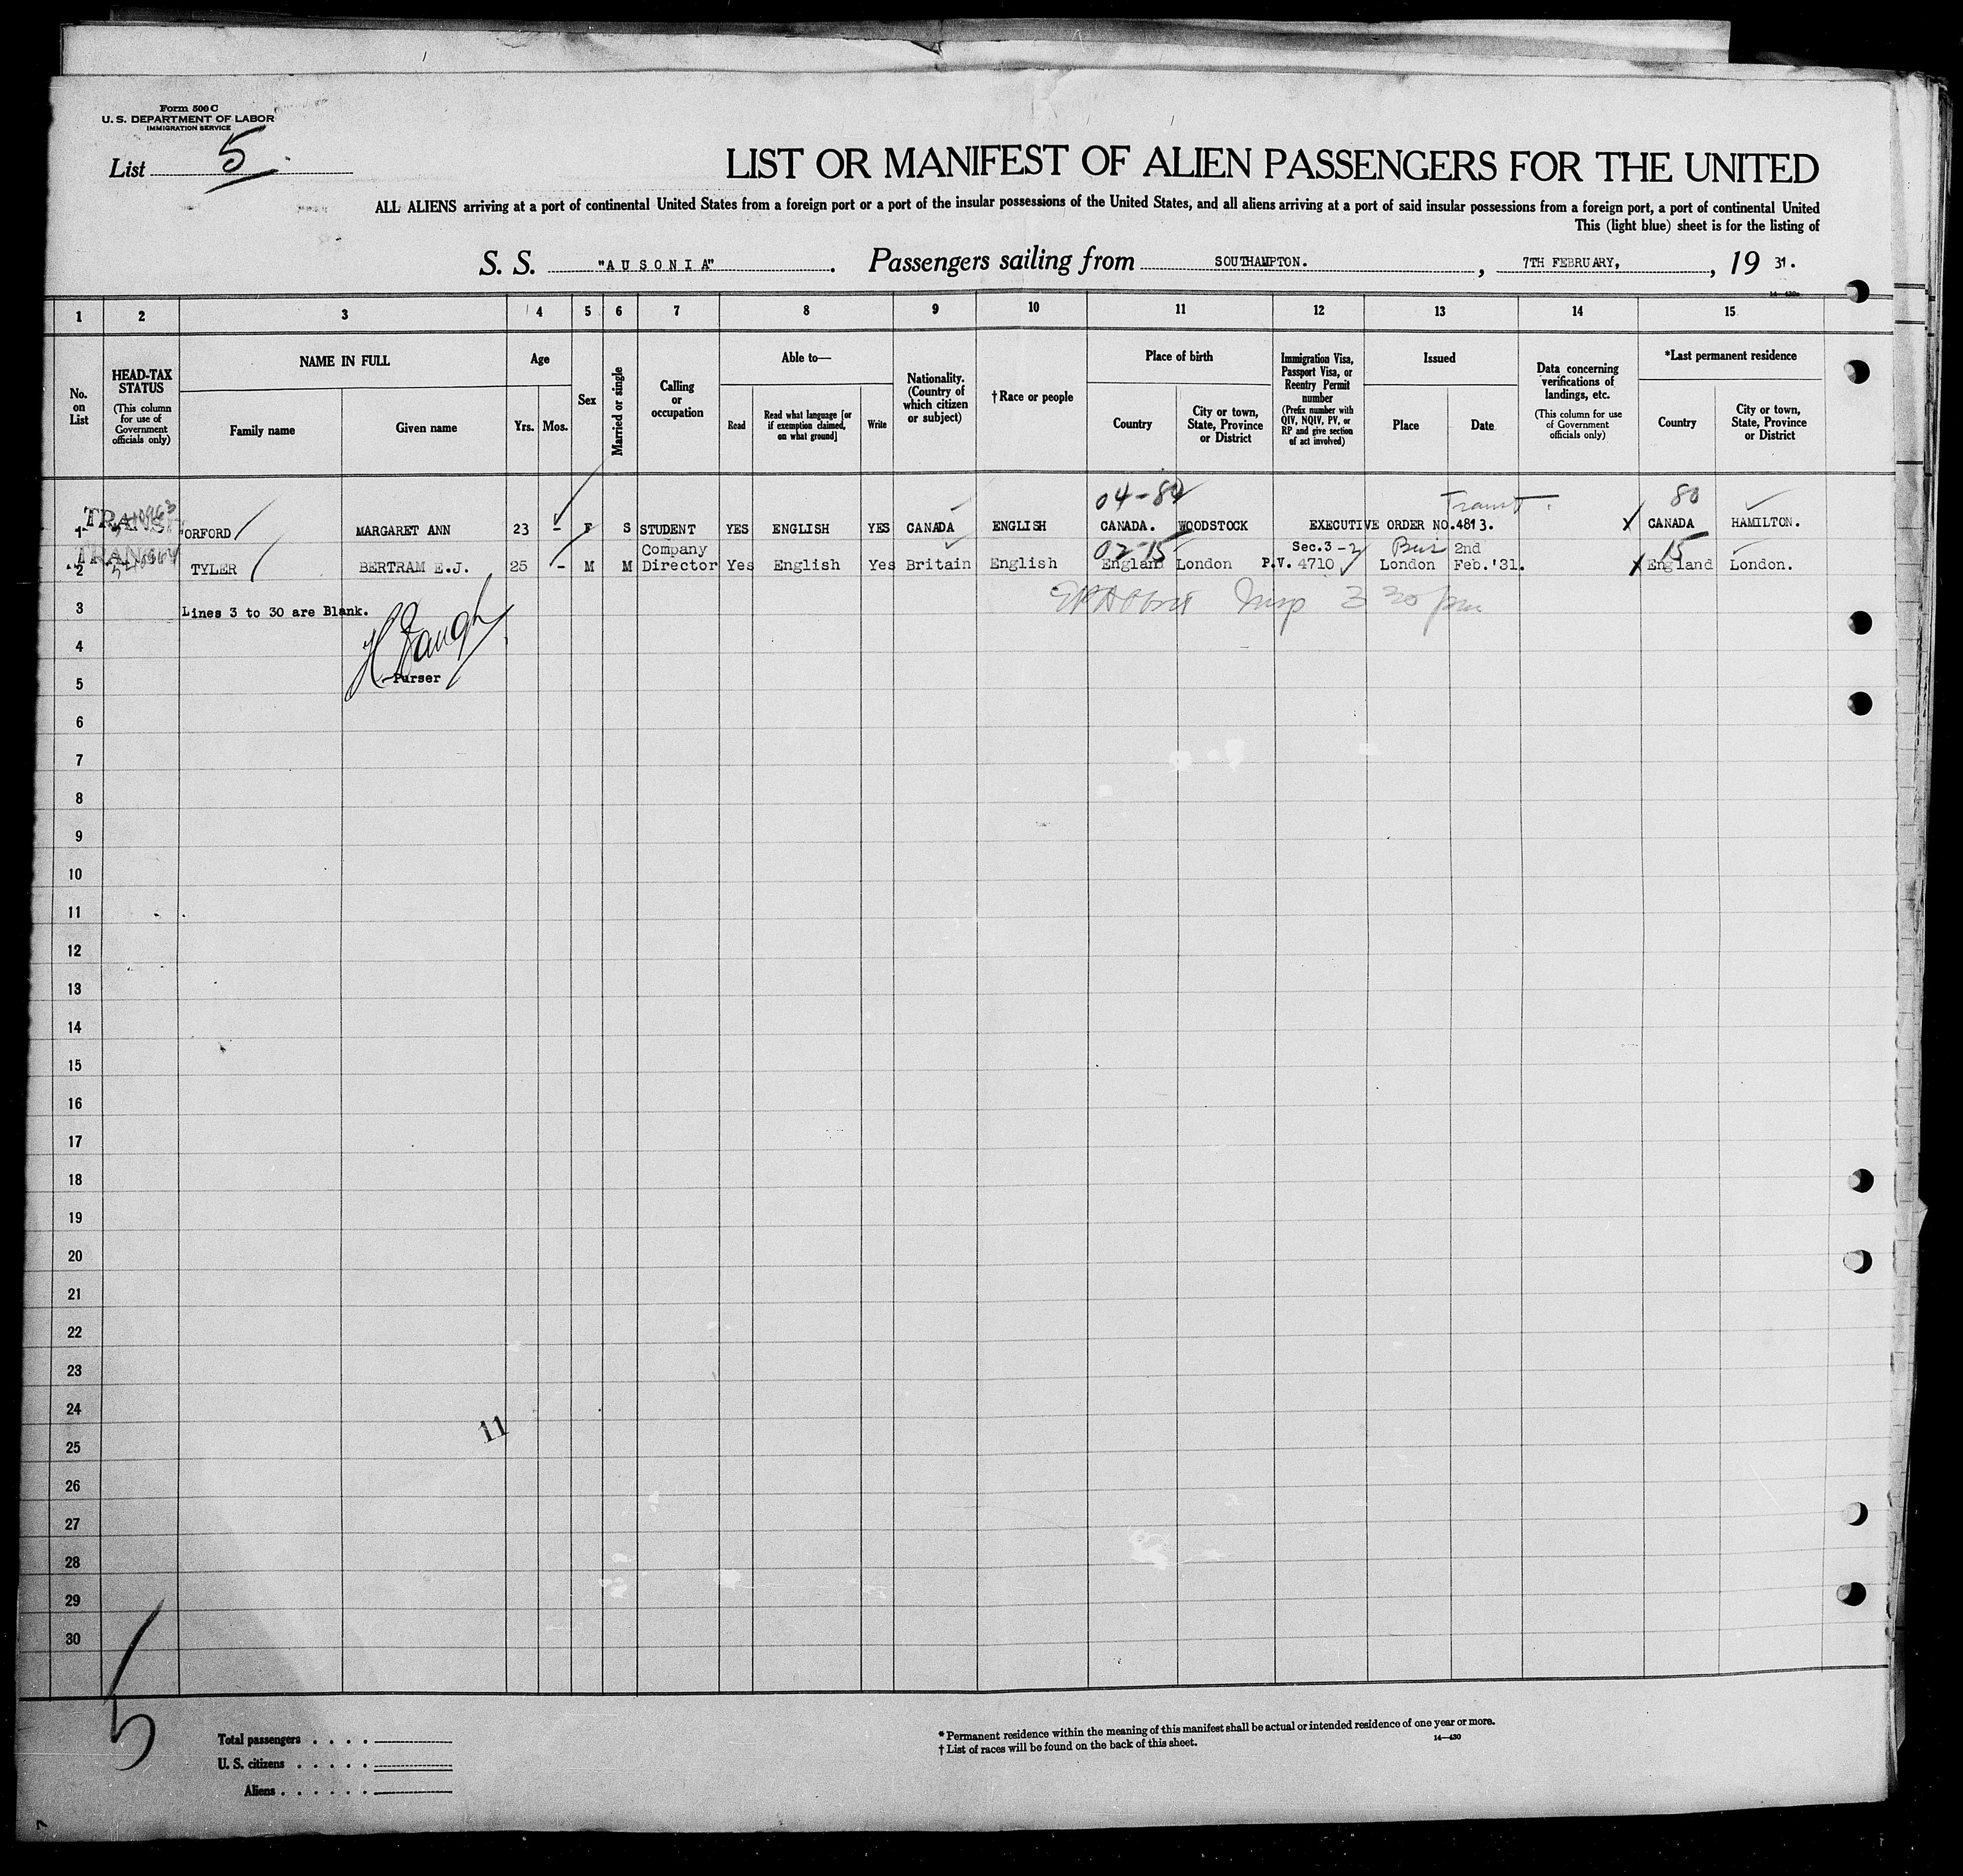 Form 500 C
U. S. DEPARTMENT OF LABOR
IMMIGRATION SERVICE
List 5
LIST OR MANIFEST OF ALIEN PASSENGERS FOR THE UNITED
ALL ALIENS arriving at a port of continental United States from a foreign port or a port of the insular possessions of the United States, and all aliens arriving at a port of said insular possessions from a foreign port, a port of continental United
This (light blue) sheet is for the listing of
S. S. "AUSONIA". Passengers sailing from SOUTHAMPTON., 7TH FEBRUARY, , 19 31.
1 2 3 4 5 6 7 8 9 10 11 12 13 14 15
No. on List
HEAD-TAX STATUS
(This column for use of Government officials only)
NAME IN FULL
Family name
Given name
Age
Yrs. Mos.
Sex
Married or single
Calling or occupation
Able to—
Read
Read what language [or if exemption claimed, on what ground]
Write
Nationality. (Country of which citizen or subject)
†Race or people
Place of birth
Country
City or town, State, Province or District
Immigration Visa, Passport Visa, or Reentry Permit number
(Prefix number with QIV, NQIV, PV, or RP and give section of act involved)
Issued
Place
Date
Data concerning verifications of landings, etc.
(This column for use of Government officials only)
*Last permanent residence
Country
City or town, State, Province or District
04-80 Transit 80
1 TRANSIT ORFORD MARGARET ANN 23 - F S STUDENT YES ENGLISH YES CANADA ENGLISH CANADA. WOODSTOCK EXECUTIVE ORDER NO.4813. X CANADA HAMILTON.
Company 02-15 Sec.3-2 Bus 2nd 15
2 TRANSIT TYLER BERTRAM E.J. 25 - M M Director Yes English Yes Britain English England London P.V. 4710 London Feb.'31. X England London.
3 Lines 3 to 30 are Blank. Insp 3 30 pm
4
5 Purser
6
7
8
9
10
11
12
13
14
15
16
17
18
19
20
21
22
23
24
11
25
26
27
28
29
30
5
Total passengers . . . .
U. S. citizens . . . . .
Aliens . . . . . .
* Permanent residence within the meaning of this manifest shall be actual or intended residence of one year or more.
† List of races will be found on the back of this sheet.
14—430